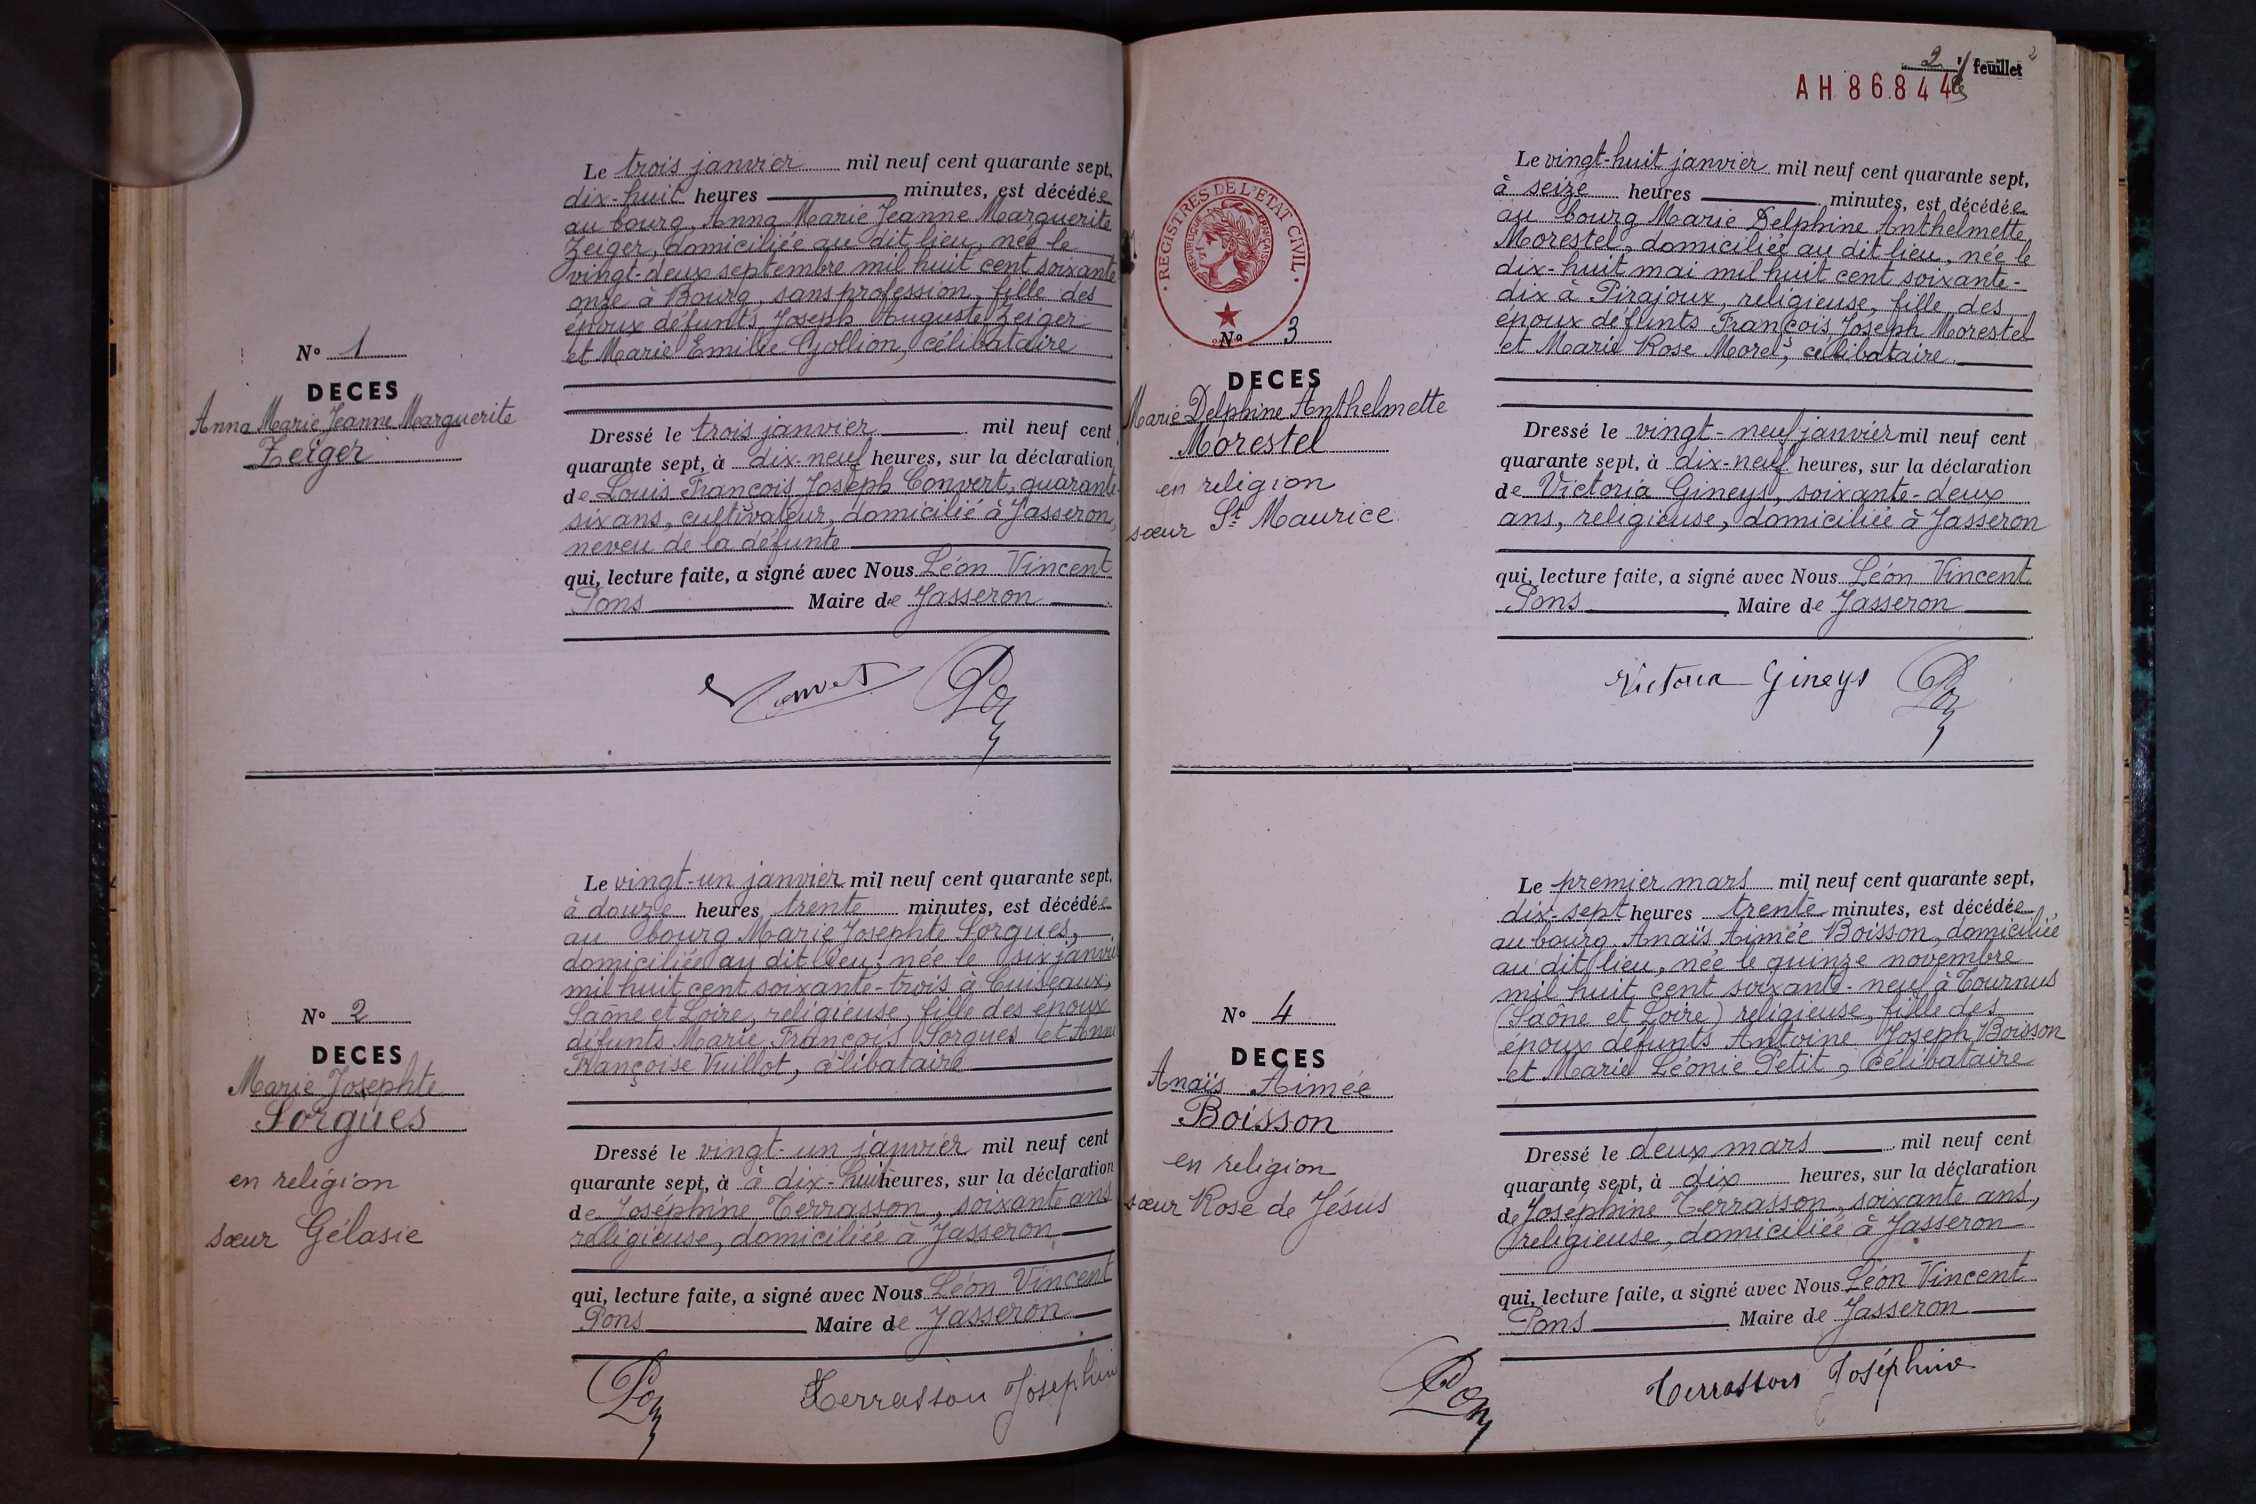 N° 1
DECES
Anna Marie Jeanne Marguerite
Zeiger
Le trois janvier mil neuf cent quarante sept,
dix-huit heures minutes, est décédée
au bourg, Anna Marie Jeanne Marguerite
Zeiger, domiciliée au dit lieu, née le
vingt-deux septembre mil huit cent soixante
onze à Bourg, sans profession, fille des
époux défunts Joseph Auguste Zeiger
et Marie Emilie Gollion, célibataire
Dressé le trois janvier mil neuf cent
quarante sept, à dix-neuf heures, sur la déclaration
de Louis François Joseph Convert, quarante
six ans, cultivateur, domicilié à Jasseron,
neveu de la défunte
qui, lecture faite, a signé avec Nous Léon Vincent
Pons Maire de Jasseron
Convert Pons
N° 2
DECES
Marie Josephte
Sorgues
en religion
sœur Gélasie
Le vingt-un janvier mil neuf cent quarante sept,
à douze heures trente minutes, est décédée
au bourg Marie Josephte Sorgues,
domiciliée au dit lieu, née le six janvier
mil huit cent soixante-trois à Cuiseaux,
Saône et Loire, religieuse, fille des époux
défunts Marie François Sorgues et Anne
Françoise Vuillot, célibataire
Dressé le vingt-un janvier mil neuf cent
quarante sept, à à dix-huit heures, sur la déclaration
de Joséphine Terrasson, soixante ans
religieuse, domiciliée à Jasseron
qui, lecture faite, a signé avec Nous Léon Vincent
Pons Maire de Jasseron
Pons Terrasson Joséphine
2 feuillet 2
AH 86844
REGISTRES DE L'ETAT CIVIL
REPUBLIQUE FRANÇAISE
N° 3
DECES
Marie Delphine Anthelmette
Morestel
en religion
sœur St Maurice
Le vingt-huit janvier mil neuf cent quarante sept,
à seize heures minutes, est décédée
au bourg Marie Delphine Anthelmette
Morestel, domiciliée au dit lieu, née le
dix-huit mai mil huit cent soixante-
dix à Pirajoux, religieuse, fille des
époux défunts François Joseph Morestel
et Marie Rose Morel, célibataire
Dressé le vingt-neuf janvier mil neuf cent
quarante sept, à dix-neuf heures, sur la déclaration
de Victoria Gineys, soixante-deux
ans, religieuse, domiciliée à Jasseron
qui, lecture faite, a signé avec Nous Léon Vincent
Pons Maire de Jasseron
Victoria Gineys Pons
N° 4
DECES
Anaïs Aimée
Boisson
en religion
sœur Rose de Jésus
Le premier mars mil neuf cent quarante sept,
dix-sept heures trente minutes, est décédée
au bourg, Anaïs Aimée Boisson, domiciliée
au dit lieu, née le quinze novembre
mil huit cent soixante-neuf à Tournus
(Saône et Loire) religieuse, fille des
époux défunts Antoine Joseph Boisson
et Marie Léonie Petit, célibataire
Dressé le deux mars mil neuf cent
quarante sept, à dix heures, sur la déclaration
de Joséphine Terrasson, soixante ans,
religieuse, domiciliée à Jasseron
qui, lecture faite, a signé avec Nous Léon Vincent
Pons Maire de Jasseron
Pons Terrasson Joséphine